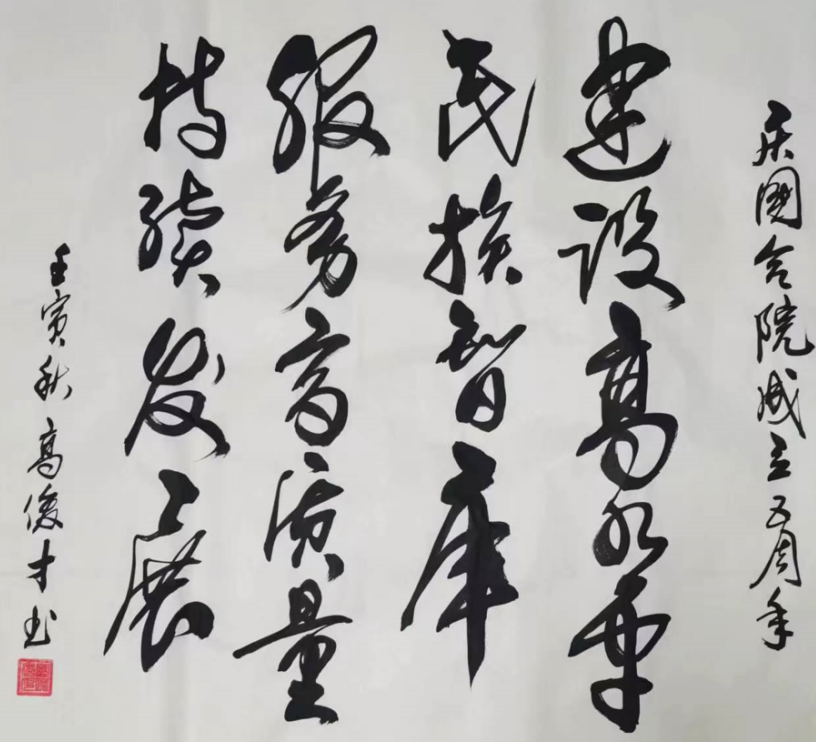 庆国合院成立五周年
建设高水平
民族智库
服务高质量
持续发展
壬寅秋高俊才书